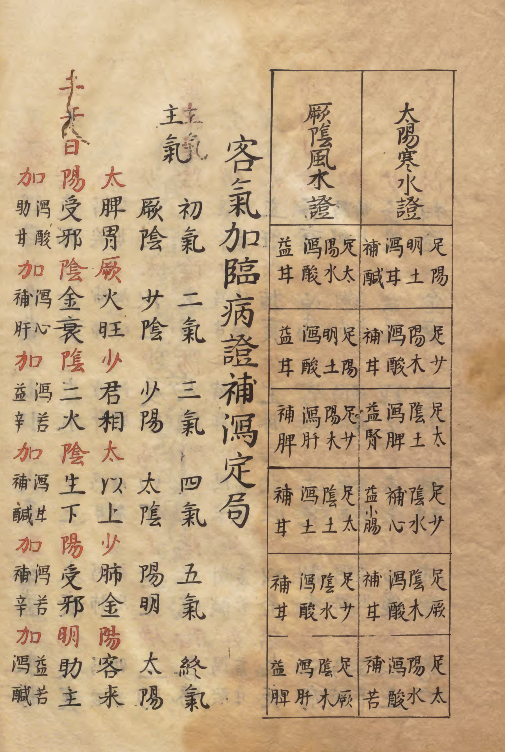 太陽寒水證
足陽明土瀉甘補醎
足少陽木瀉酸補甘
足太陰土瀉脾益腎
足少陰水補心益小腸
足厥陰木瀉酸補甘
足太陽水瀉酸補苦
厥陰風水證
足太陽水瀉酸益甘
足陽明土瀉酸益甘
足少陽木瀉肝補脾
足太陰土瀉土補甘
足少陰水瀉酸補甘
足厥陰木瀉肝益脾
客氣加臨病證補瀉定局
主氣 初氣 二氣 三氣 四氣 五氣 終氣
主氣 厥陰 少陰 少陽 太陰 陽明 太陽
太脾胃厥火旺少君相太以上少肺金陽客来
日陽受邪陰金衰陰二火陰生下陽受邪明助主
加瀉酸助甘加瀉心補肝加瀉苦益辛加瀉甘補醎加瀉苦補辛加益苦瀉醎